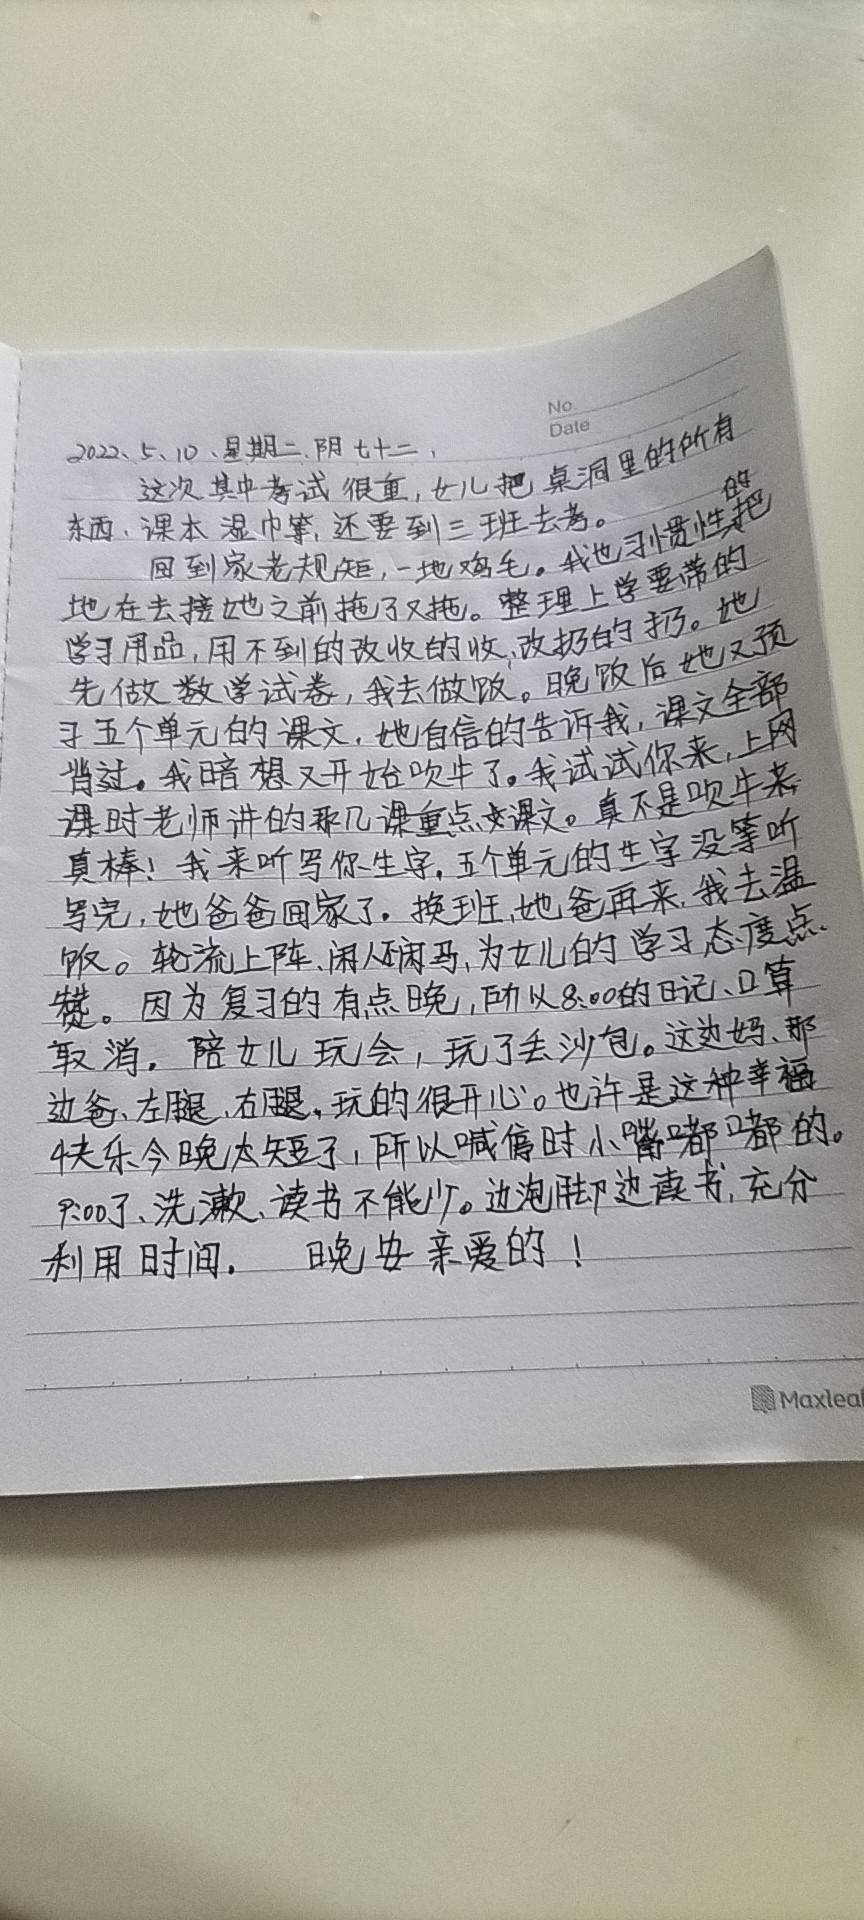 No.
Date
2022、5、10、星期二、阴 七十二、
这次其中考试很重,女儿把桌洞里的所有
东西、课本 湿巾等,还要到三班去考。
回到家老规矩,一地鸡毛。我也习惯性的把
地在去接她之前拖了又拖。整理上学要带的
学习用品,用不到的改收的收,改扔的扔。她
先做数学试卷,我去做饭。晚饭后她又预
习五个单元的课文,她自信的告诉我,课文全部
背过。我暗想又开始吹牛了。我试试你来,上网
课时老师讲的那几课重点课文。真不是吹牛来
真棒!我来听写你生字,五个单元的生字没等听
写完,她爸爸回家了。换班,她爸再来,我去温
饭。轮流上阵、闲人不闲马,为女儿的学习态度点
赞。因为复习的有点晚,所以8:00的日记、口算
取消。陪女儿玩会,玩了丢沙包。这边妈、那
边爸、左腿、右腿,玩的很开心。也许是这种幸福
快乐今晚太短了,所以喊停时小嘴嘟嘟的。
9:00了、洗漱、读书不能少。边泡脚边读书,充分
利用时间. 晚安亲爱的!
Maxleaf